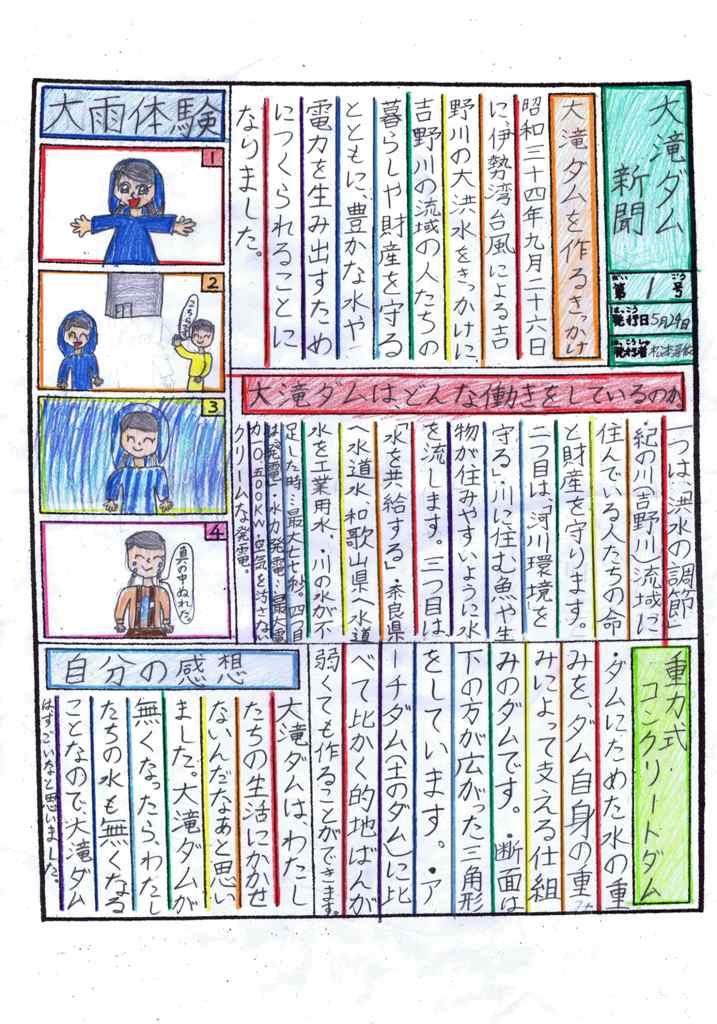 大滝ダム
新聞
第1号
だい ごう
発行日 5月29日
はっこうび
発行者
はっこうしゃ
大滝ダムを作るきっかけ
昭和三十四年九月二十六日
に、伊勢湾台風による吉
野川の大洪水をきっかけに、
吉野川の流域の人たちの
暮らしや財産を守る
とともに、豊かな水や
電力を生み出すため
につくられることに
なりました。
大雨体験
1
2
こちらです
3
4
真の中ぬれた。
大滝ダムは、どんな働きをしているのか
一つは、「洪水の調節」
・紀の川(吉野川)流域に
住んでいる人たちの命
と財産を守ります。
二つ目は、「河川環境」を
守る」・川に住む魚や生
物が住みやすいように水
を流します。三つ目は
「水を共給する」・奈良県
へ水道水、和歌山県へ水道
水を工業用水、・川の水が不
足した時…最大七七/秒。四つ目
は「発電」・水力発電…最大電
力10500KW・空気を汚さない
クリーンな発電。
重力式
コンクリートダム
・ダムにためた水の重
みを、ダム自身の重
みによって支える仕組
みのダムです。・断面は
下の方が広がった三角形
をしています。・ア
ーチダム(土のダム)に比
べて比かく的地ばんが
弱くても作ることができます。
自分の感想
大滝ダムは、わたし
たちの生活にかかせ
ないんだなあと思い
ました。大滝ダムが
無くなったら、わたし
たちの水も無くなる
ことなので大滝ダム
は、すごいなと思いました。